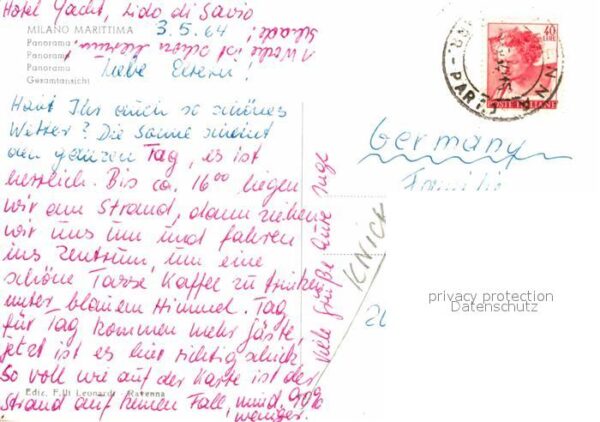 Hotel Yacht, Lido di Savio
MILANO MARITTIMA
3.5.64
Panorama
Panorama
Panorama
Gesamtansicht
1 Woche ist schon herum,
schade!
Liebe Eltern!
Habt Ihr auch so schönes
Wetter? Die Sonne scheint
den ganzen Tag, es ist
herrlich. Bis ca. 16⁰⁰ liegen
wir am Strand, dann ziehen
wir uns um und fahren
ins Zentrum, um eine
schöne Tasse Kaffee zu trinken
unter blauem Himmel. Tag
für Tag kommen mehr Gäste,
jetzt ist es hier richtig schick.
So voll wie auf der Karte ist der
Strand auf keinen Fall, mind. 90%
weniger.
Ediz. F.lli Leonardi - Ravenna
Viele Grüße Eure Inge
KNICK
40
LIRE
POSTE ITALIANE
Germany
Familie
privacy protection
Datenschutz